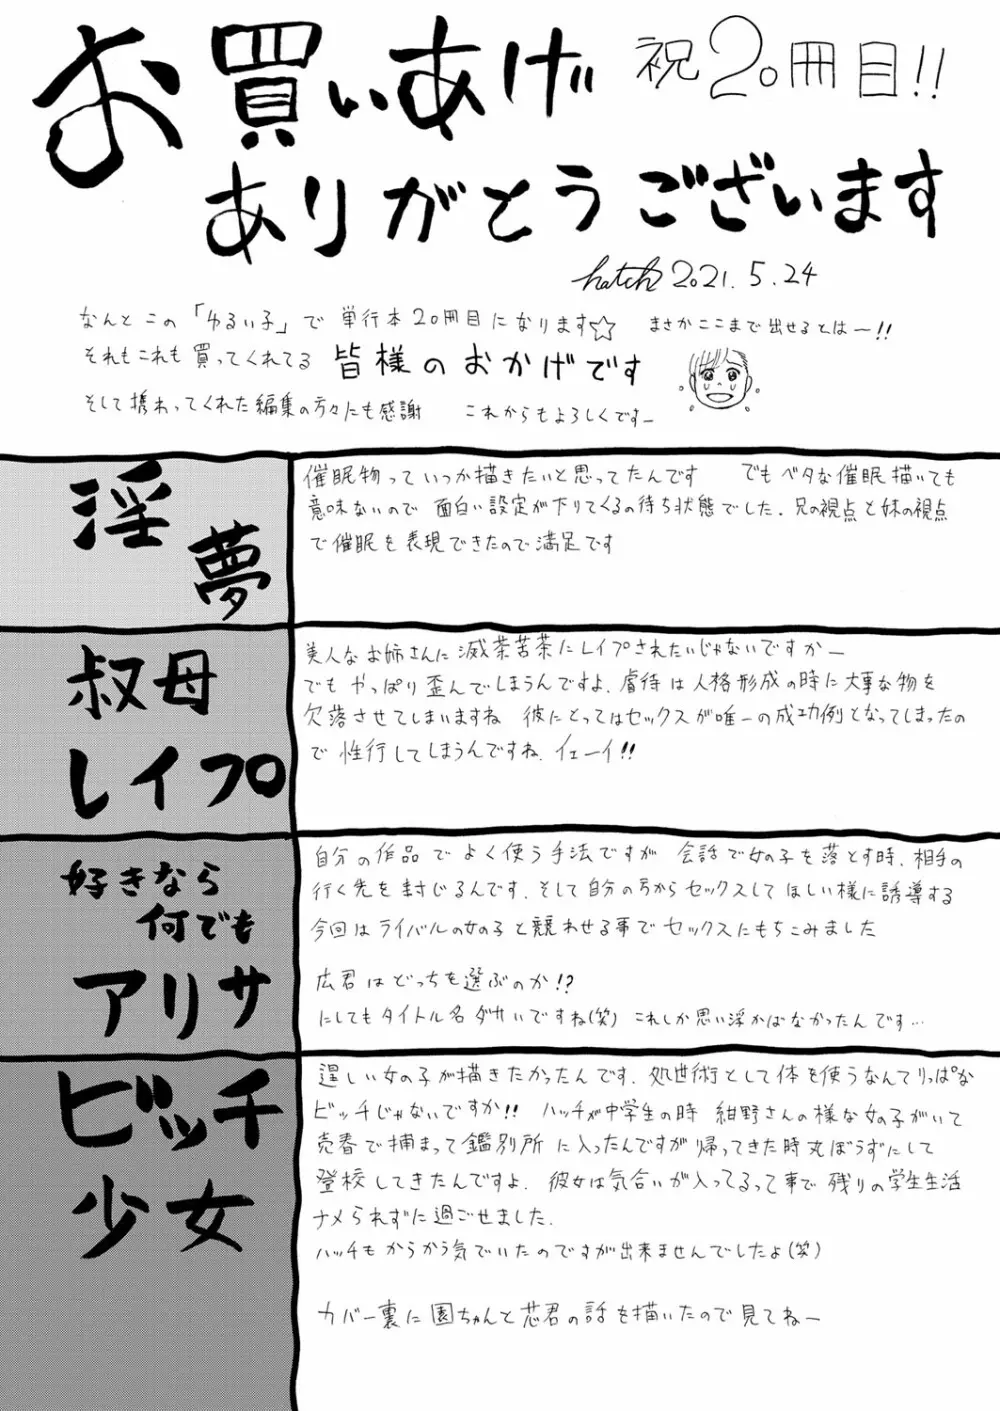 お買いあげ 祝20冊目!!
ありがとうございます
hatch 2021.5.24
なんとこの「ゆるい子」で 単行本20冊目になります☆ まさかここまで出せるとはー!!
それもこれも買ってくれてる 皆様のおかげです
そして携わってくれた編集の方々にも感謝 これからもよろしくですー
淫夢
催眠物っていつか描きたいと思ってたんです でもベタな催眠描いても
意味ないので 面白い設定が下りてくるの待ち状態でした. 兄の視点と妹の視点
で催眠を表現できたので満足です
叔母
レイプ
美人なお姉さんに滅茶苦茶にレイプされたいじゃないですかー
でも やっぱり歪んでしまうんですよ. 虐待は人格形成の時に大事な物を
欠落させてしまいますね 彼にとってはセックスが唯一の成功例となってしまったの
で 性行してしまうんですね. イェーイ!!
好きなら
何でも
アリサ
自分の作品でよく使う手法ですが 会話で女の子を落とす時. 相手の
行く先を封じるんです. そして自分の方からセックスしてほしい様に誘導する
今回はライバルの女の子と競わせる事でセックスにもちこみました
広君はどっちを選ぶのか!?
にしてもタイトル名ダサいですね(笑) これしか思い浮かばなかったんです…
ビッチ
少女
逞しい女の子が描きたかったんです. 処世術として体を使うなんてりっぱな
ビッチじゃないですか!! ハッチが中学生の時 紺野さんの様な女の子がいて
売春で捕まって鑑別所に入ったんですが帰ってきた時丸ぼうずにして
登校してきたんですよ. 彼女は気合いが入ってるって事で残りの学生生活
ナメられずに過ごせました.
ハッチもからかう気でいたのですが出来ませんでしたよ(笑)
カバー裏に園ちゃんと芯君の話を描いたので見てねー